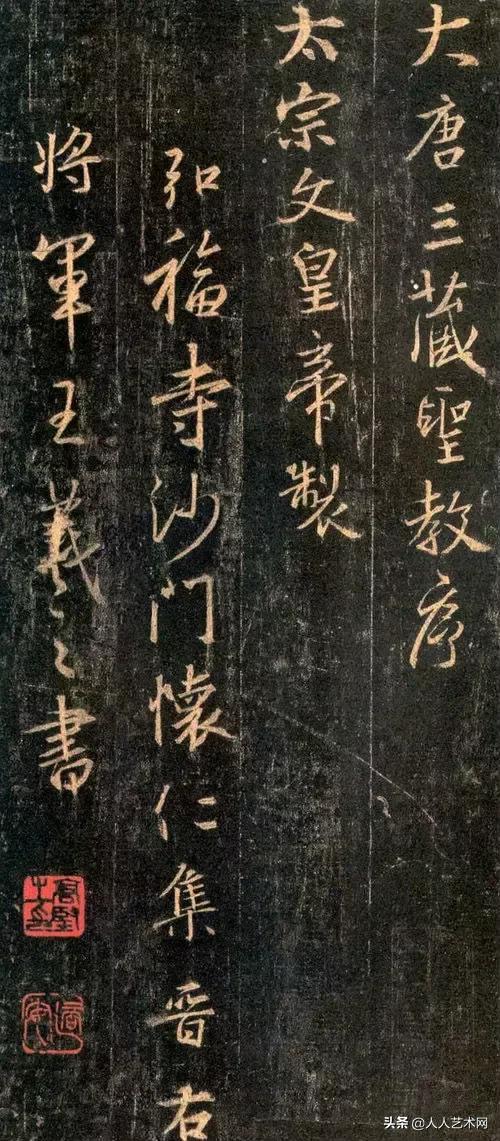 大唐三藏聖教序
太宗文皇帝製
弘福寺沙門懷仁集晉右
將軍王羲之書
头条 @人人艺术网